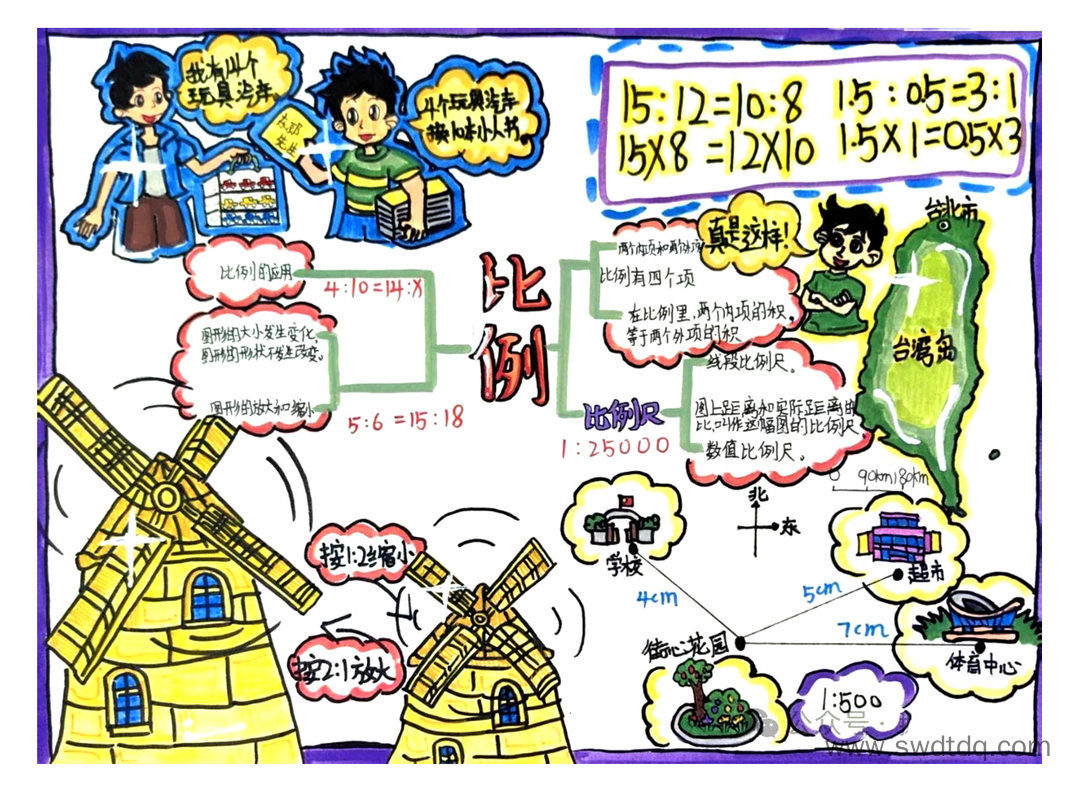 我有14个
玩具汽车。
4个玩具汽车
换10本小人书。
15:12=10:8
15×8=12×10
1.5:0.5=3:1
1.5×1=0.5×3
比例的应用
4:10=14:x
图形的大小发生变化,
图形的形状不发生改变。
图形的放大和缩小
5:6=15:18
比例
两个内项和两个外项
比例有四个项
在比例里,两个内项的积,
等于两个外项的积
真是这样!
台北市
台湾岛
比例尺
1:25000
线段比例尺。
图上距离和实际距离的
比,叫作这幅图的比例尺
数值比例尺。
0 90km180km
按1:2缩小
按2:1放大
北
东
学校
超市
4cm
5cm
7cm
街心花园
体育中心
1:500
www.swdtdq.com